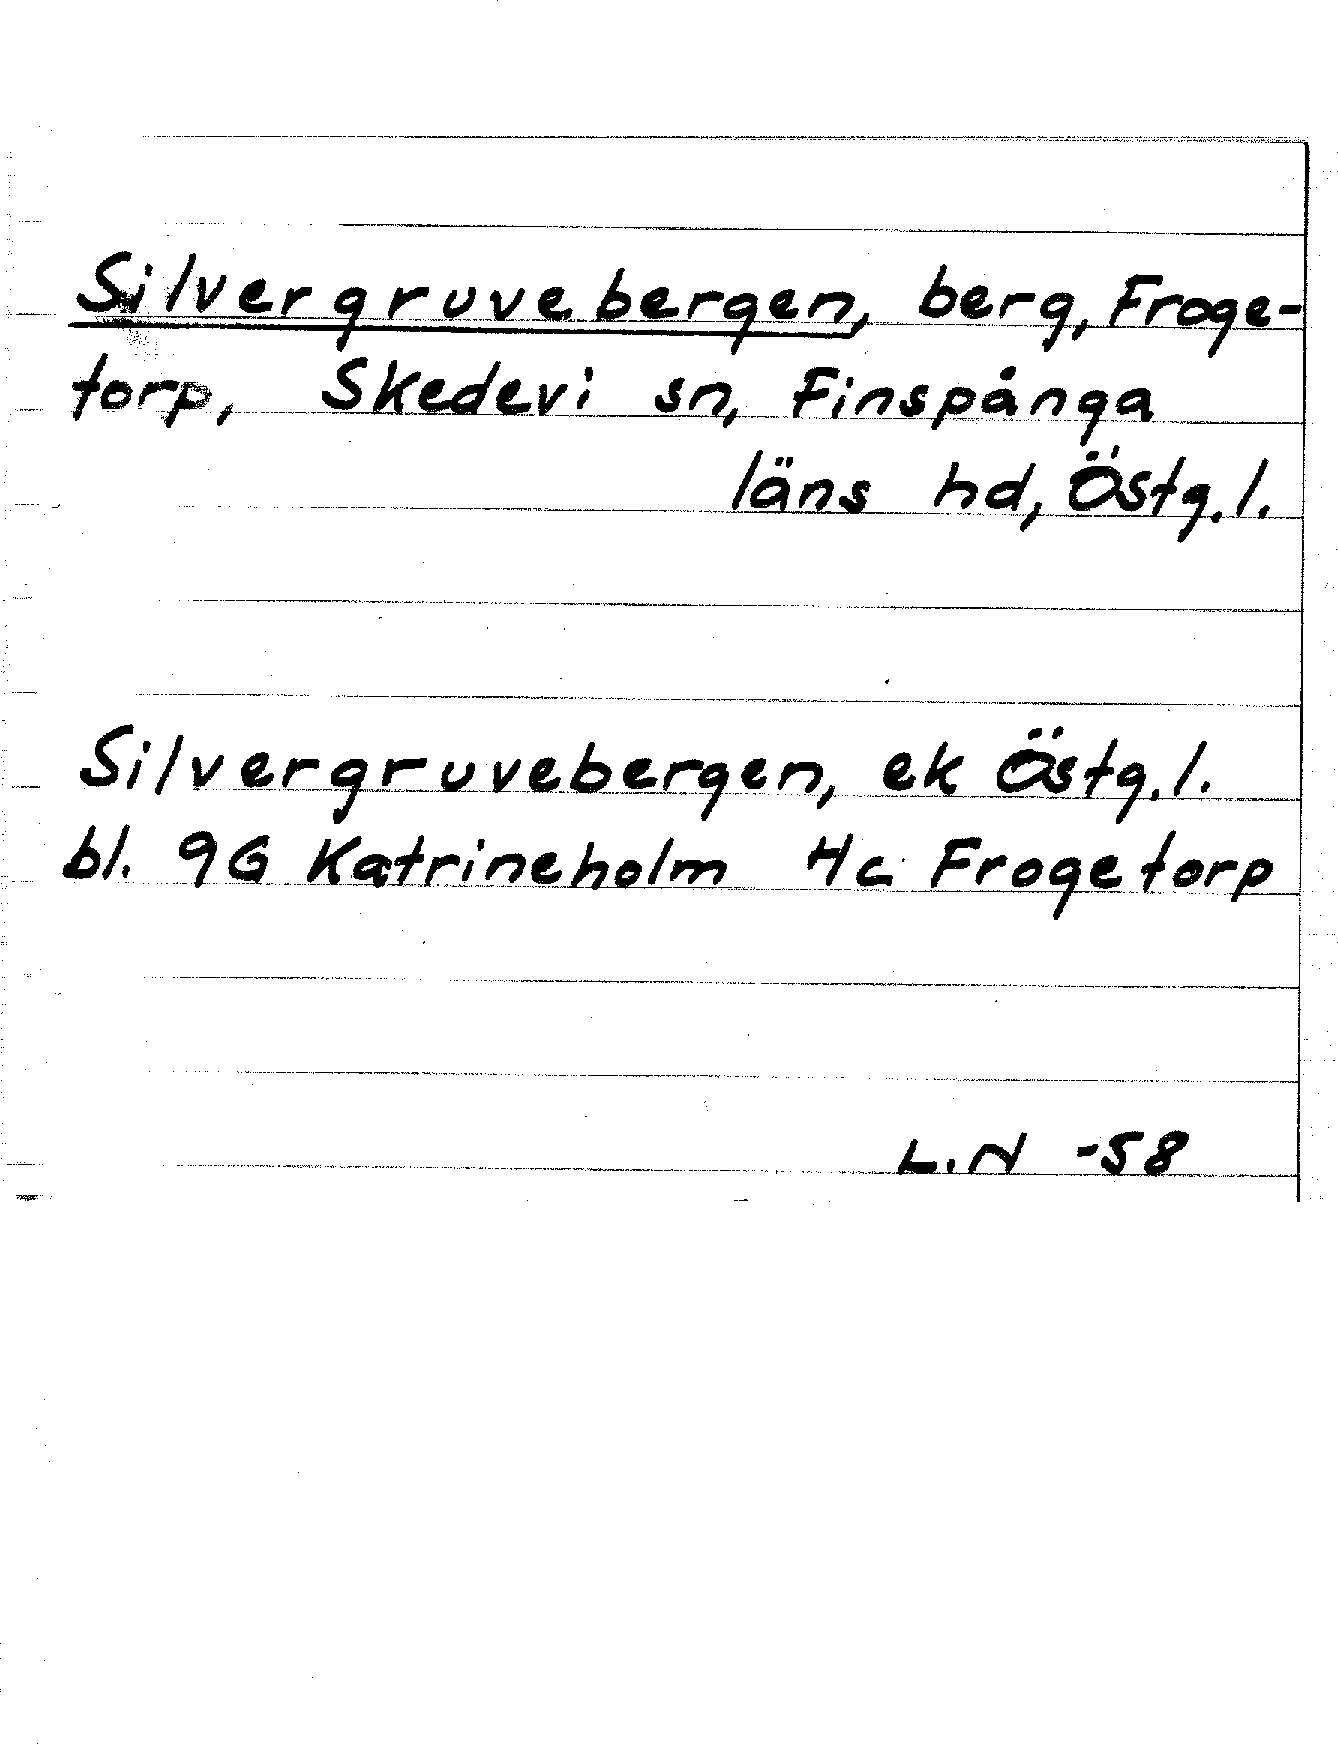 Silvergruvebergen, berg, Froge-
torp, Skedevi sn, Finspånga
läns hd, Östg. l.
Silvergruvebergen, ek Östg. l.
bl. 9G Katrineholm 4c Frogetorp
L.N -58